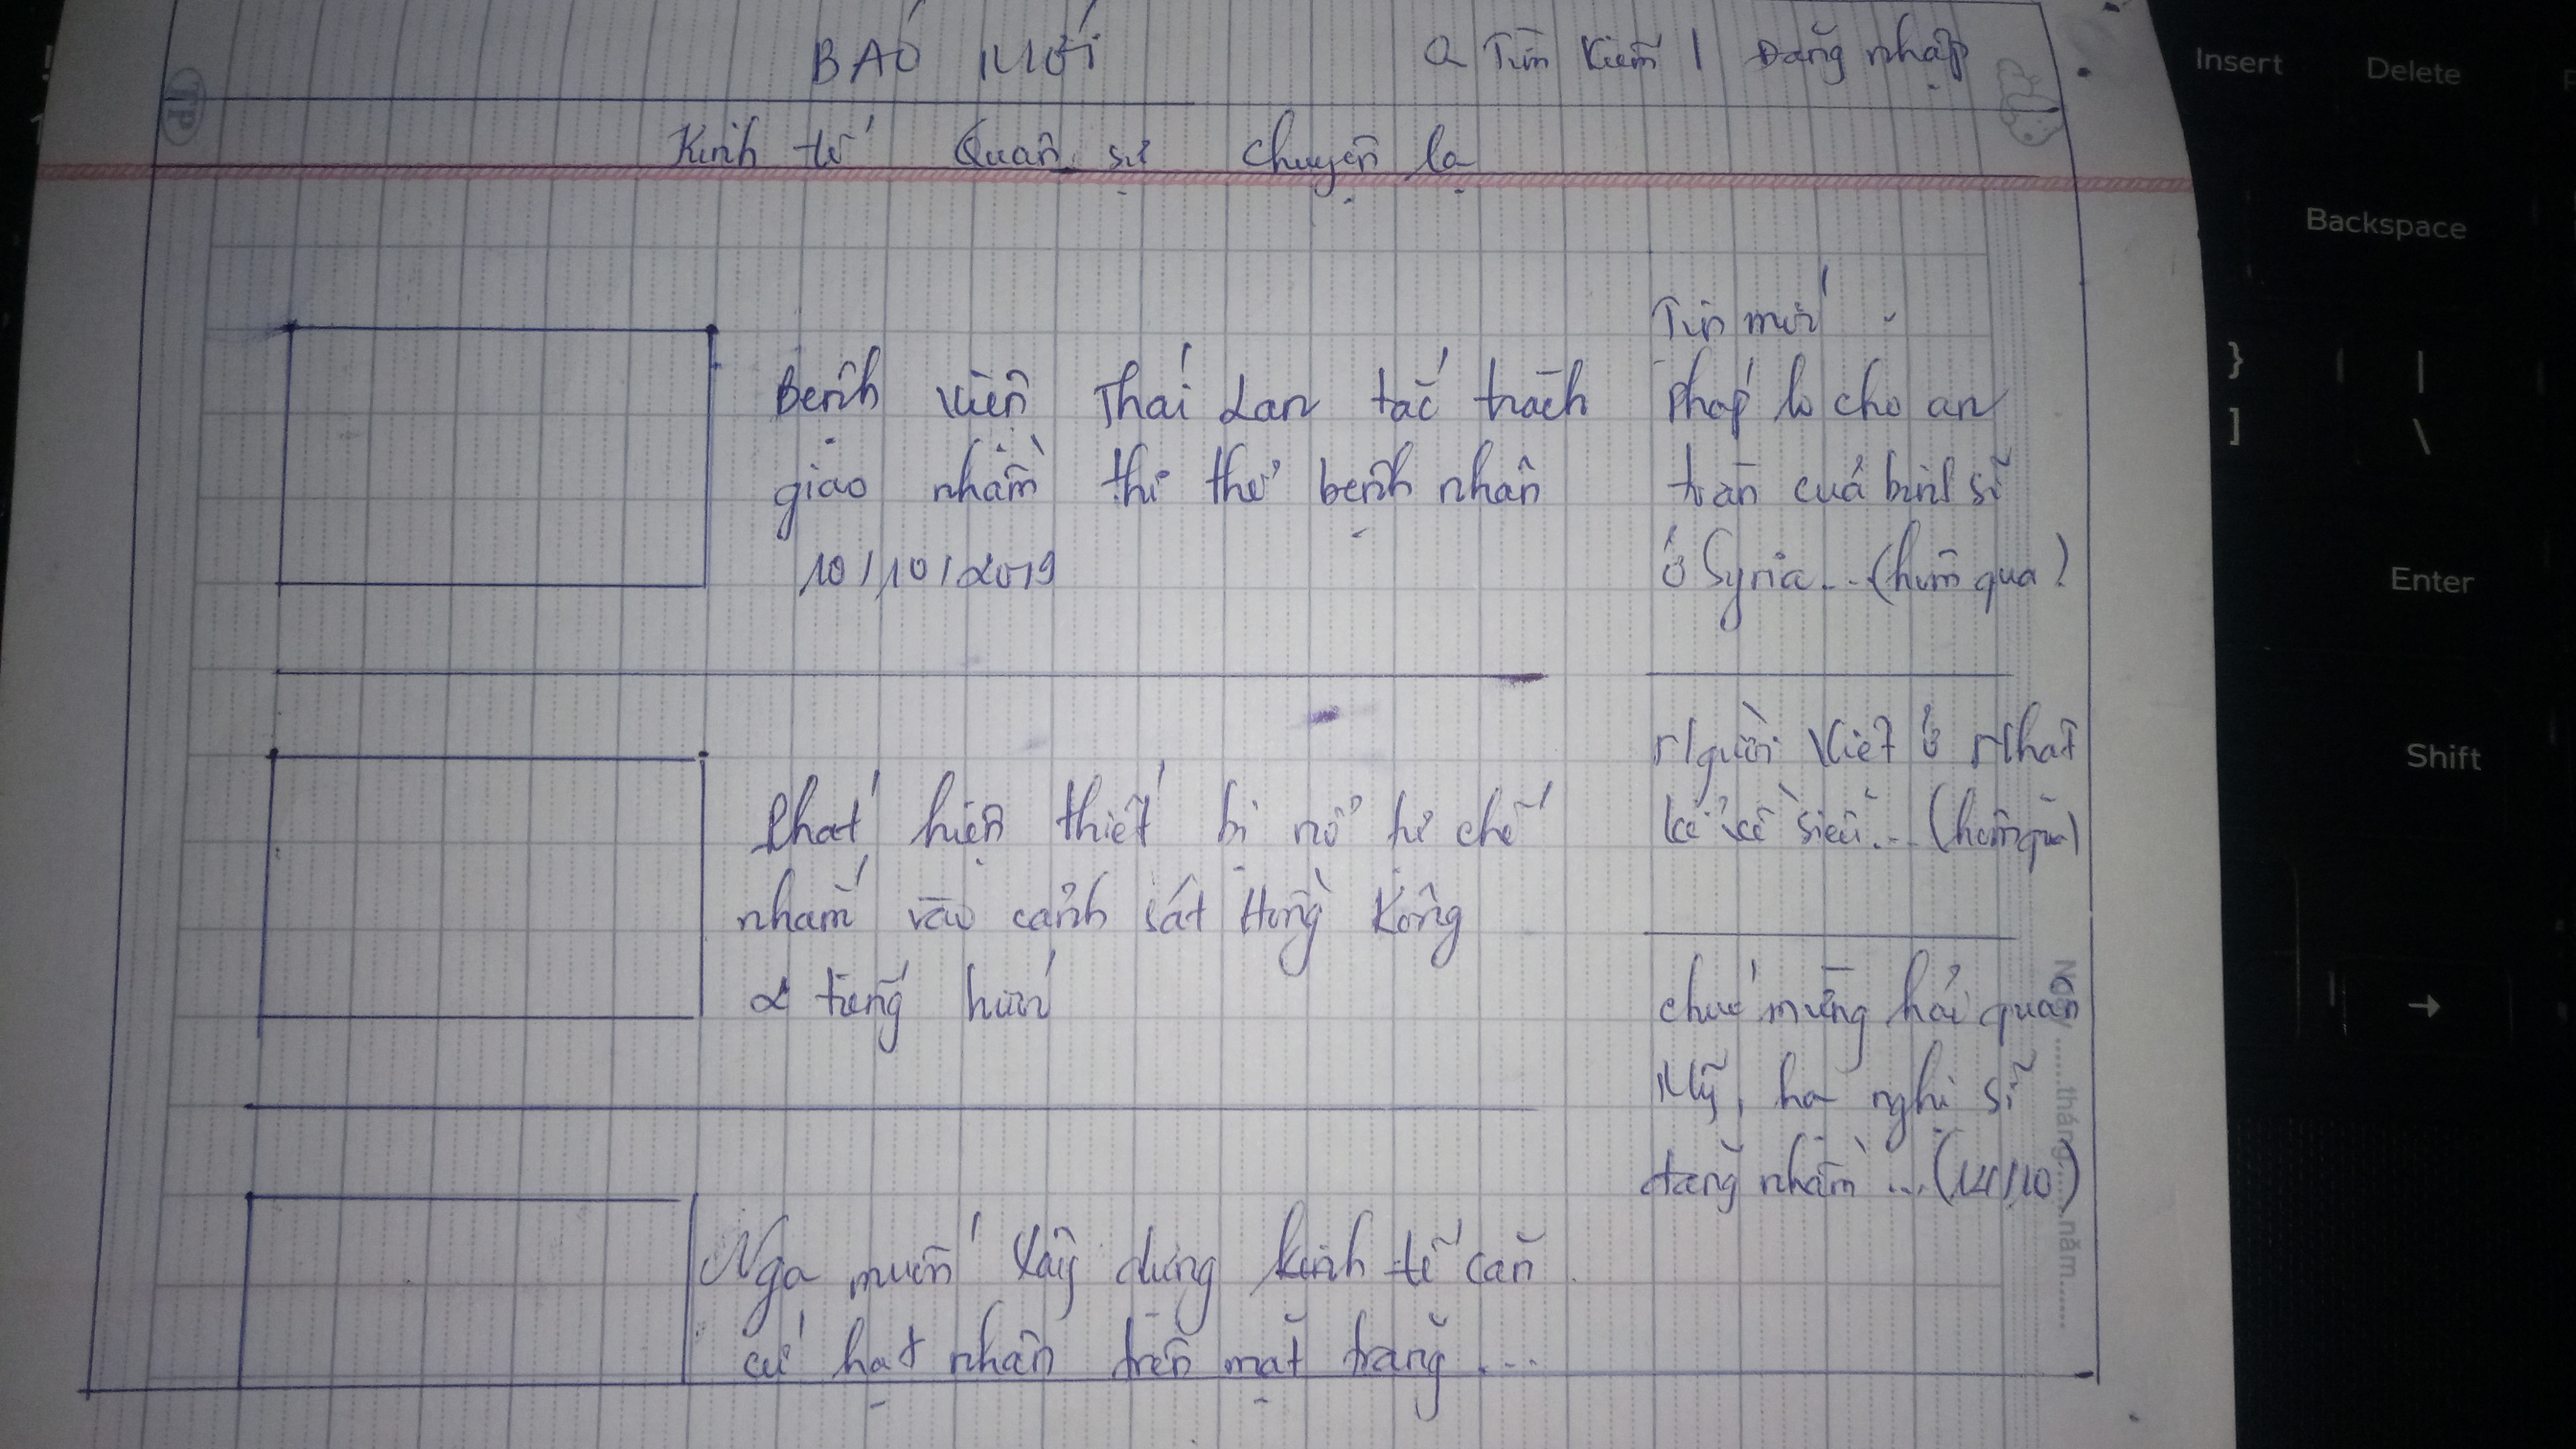 BÁO MỚI
Q Tìm kiếm | Đăng nhập
Kinh tế Quân sự Chuyện lạ
Bệnh viện Thái Lan tắc trách
giao nhầm thi thể bệnh nhân
10/10/2019
Phát hiện thiết bị nổ tự chế
nhắm vào cảnh sát Hồng Kông
2 tiếng
Nga muốn xây dựng kinh tế căn
cứ hạt nhân trên mặt trăng ...
Tin mới
Pháp lo cho an
toàn của binh sĩ
ở Syria... (hôm qua)
Người Việt ở Nhật
kể về siêu... (hôm qua)
Chúc mừng hải quân
Mỹ, hạ nghị sĩ
đăng nhầm ... (14/10)
Ngày ...... tháng ...... năm ......
Insert
Delete
Backspace
}
]
|
\
Enter
Shift
→